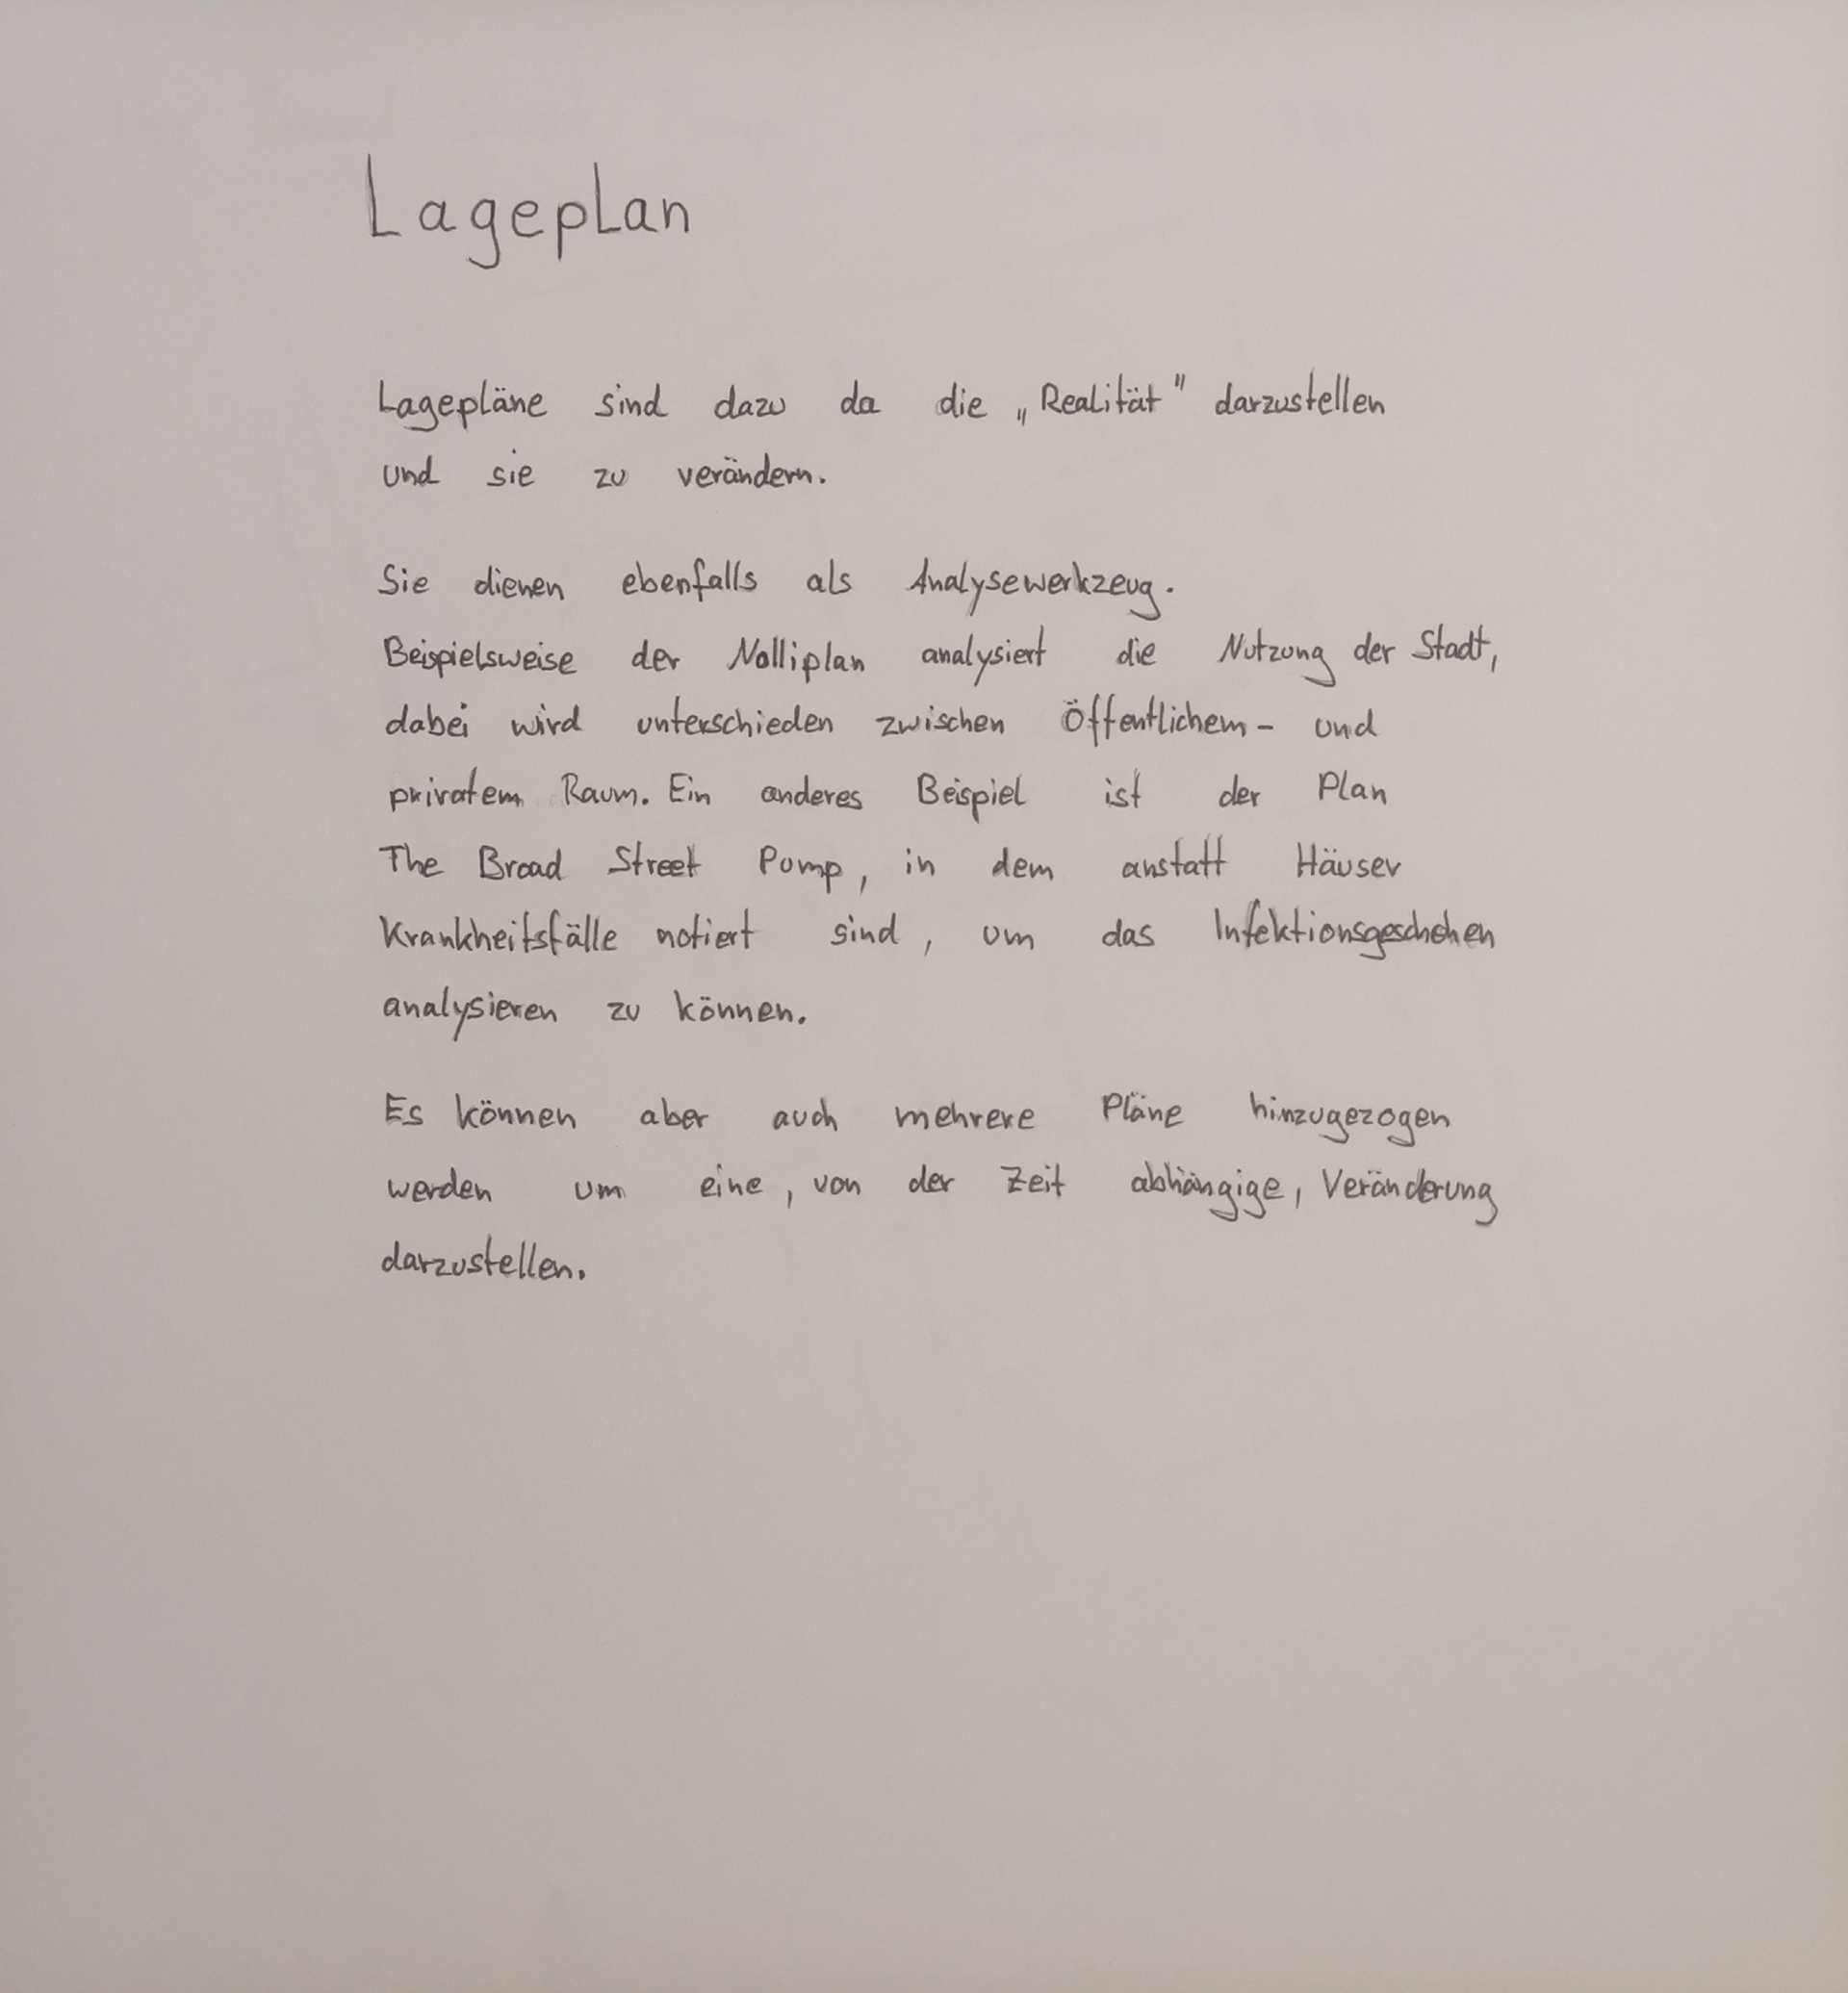 Lageplan
Lagepläne sind dazu da die „Realität" darzustellen
und sie zu verändern.
Sie dienen ebenfalls als Analysewerkzeug.
Beispielsweise der Nolliplan analysiert die Nutzung der Stadt,
dabei wird unterschieden zwischen Öffentlichem- und
privatem Raum. Ein anderes Beispiel ist der Plan
The Broad Street Pump, in dem anstatt Häuser
Krankheitsfälle notiert sind, um das Infektionsgeschehen
analysieren zu können.
Es können aber auch mehrere Pläne hinzugezogen
werden um eine, von der Zeit abhängige, Veränderung
darzustellen.